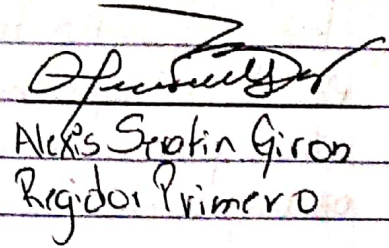 Alexis Serafin Giron
Regidor Primero